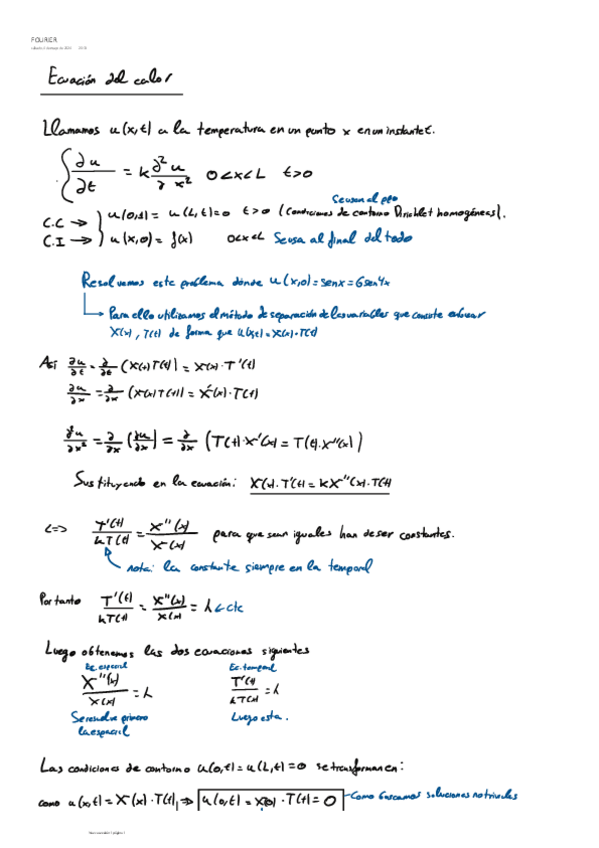 FOURIER
Ecuación del calor
Llamamos u(x,t) a la temperatura en un punto x en un instante t.
∂u/∂t = k ∂²u/∂x² 0<x<L t>0
Se usan al ppo
C.C → u(0,t) = u(L,t)=0 t>0 (Condiciones de contorno Dirichlet homogéneas).
C.I → u(x,0) = f(x) 0<x<L Se usa al final del todo
Resolvamos este problema donde u(x,0)=senx=6sen4x
Para ello utilizamos el método de separación de las variables que consiste en buscar
X(x), T(t) de forma que u(x,t)=X(x)·T(t)
Así ∂u/∂t = ∂/∂t (X(x)T(t)) = X(x)·T'(t)
∂u/∂x = ∂/∂x (X(x)T(t)) = X'(x)·T(t)
∂²u/∂x² = ∂/∂x (∂u/∂x) = ∂/∂x (T(t)·X'(x) = T(t)·X''(x))
Sustituyendo en la ecuación: X(x)·T'(t) = kX''(x)·T(t)
<=> T'(t)/kT(t) = X''(x)/X(x) para que sean iguales han de ser constantes.
nota: la constante siempre en la temporal
Por tanto T'(t)/kT(t) = X''(x)/X(x) = λ ← cte
Luego obtenemos las dos ecuaciones siguientes
Ec. espacial Ec. temporal
X''(x)/X(x) = λ T'(t)/kT(t) = λ
Se resuelve primero Luego esta.
la espacial
Las condiciones de contorno u(0,t)=u(L,t)=0 se transforman en:
como u(x,t) = X(x)·T(t) ⇒ u(0,t) = X(0)·T(t) = 0 Como buscamos soluciones no triviales